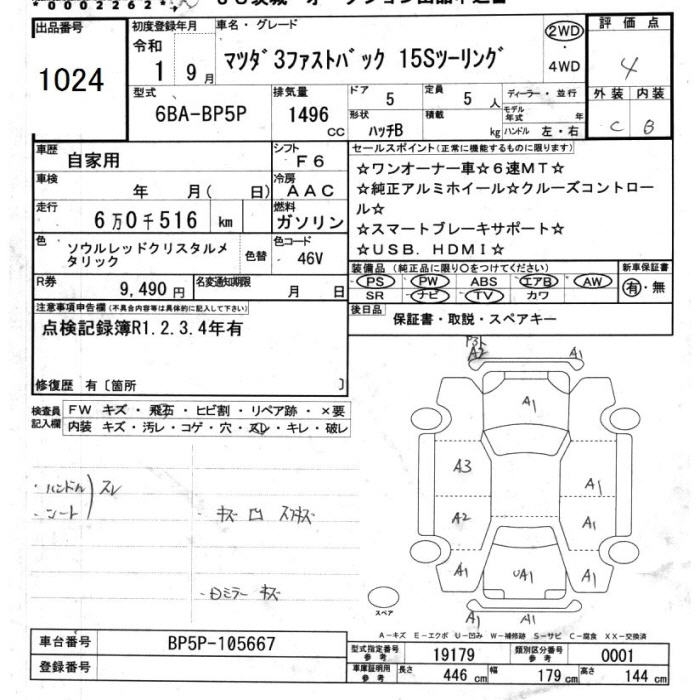 *0002262*
出品番号
1024
初度登録年月
令和
1 9月
車名・グレード
マツダ3ファストバック 15Sツーリング
2WD
・
4WD
評価点
4
型式
6BA-BP5P
排気量
1496
CC
ドア
5
定員
5 人
形状
ハッチB
積載
kg
ディーラー・並行
モデル年式 年
ハンドル 左・右
外装 内装
C B
車歴
自家用
シフト
F6
車検
年 月( 日)
冷房
AAC
走行
6万0千516 km
燃料
ガソリン
色
ソウルレッドクリスタルメ
タリック
色替
色コード
46V
R券
9,490円
名変通知期限
月 日
セールスポイント(正常に機能するものに限ります)
☆ワンオーナー車☆6速MT☆
☆純正アルミホイール☆クルーズコントロー
ル☆
☆スマートブレーキサポート☆
☆USB. HDMI☆
装備品(純正品に限り○をつけてください)
PS PW ABS エアB AW
SR ナビ TV カワ
新車保証書
有・無
後日品
保証書・取説・スペアキー
注意事項申告欄(不具合内容等は具体的に記入して下さい)
点検記録簿R1.2.3.4年有
修復歴 有〔箇所 〕
検査員
記入欄
FW キズ・飛石・ヒビ割・リペア跡・×要
内装 キズ・汚レ・コゲ・穴・スレ・キレ・破レ
・ハンドル
・シート
スレ
・キズ 凹 スリキズ
・Dミラー キズ
A2
A1
A1
A3
A1
A2
A1
A1
UA1
A1
A1
スペア
A-キズ E-エクボ U-凹み W-補修跡 S-サビ C-腐食 XX-交換済
車台番号
BP5P-105667
登録番号
型式指定番号
参考
19179
類別区分番号
参考
0001
車庫証明用
参考
長さ
446 cm
幅
179 cm
高さ
144 cm